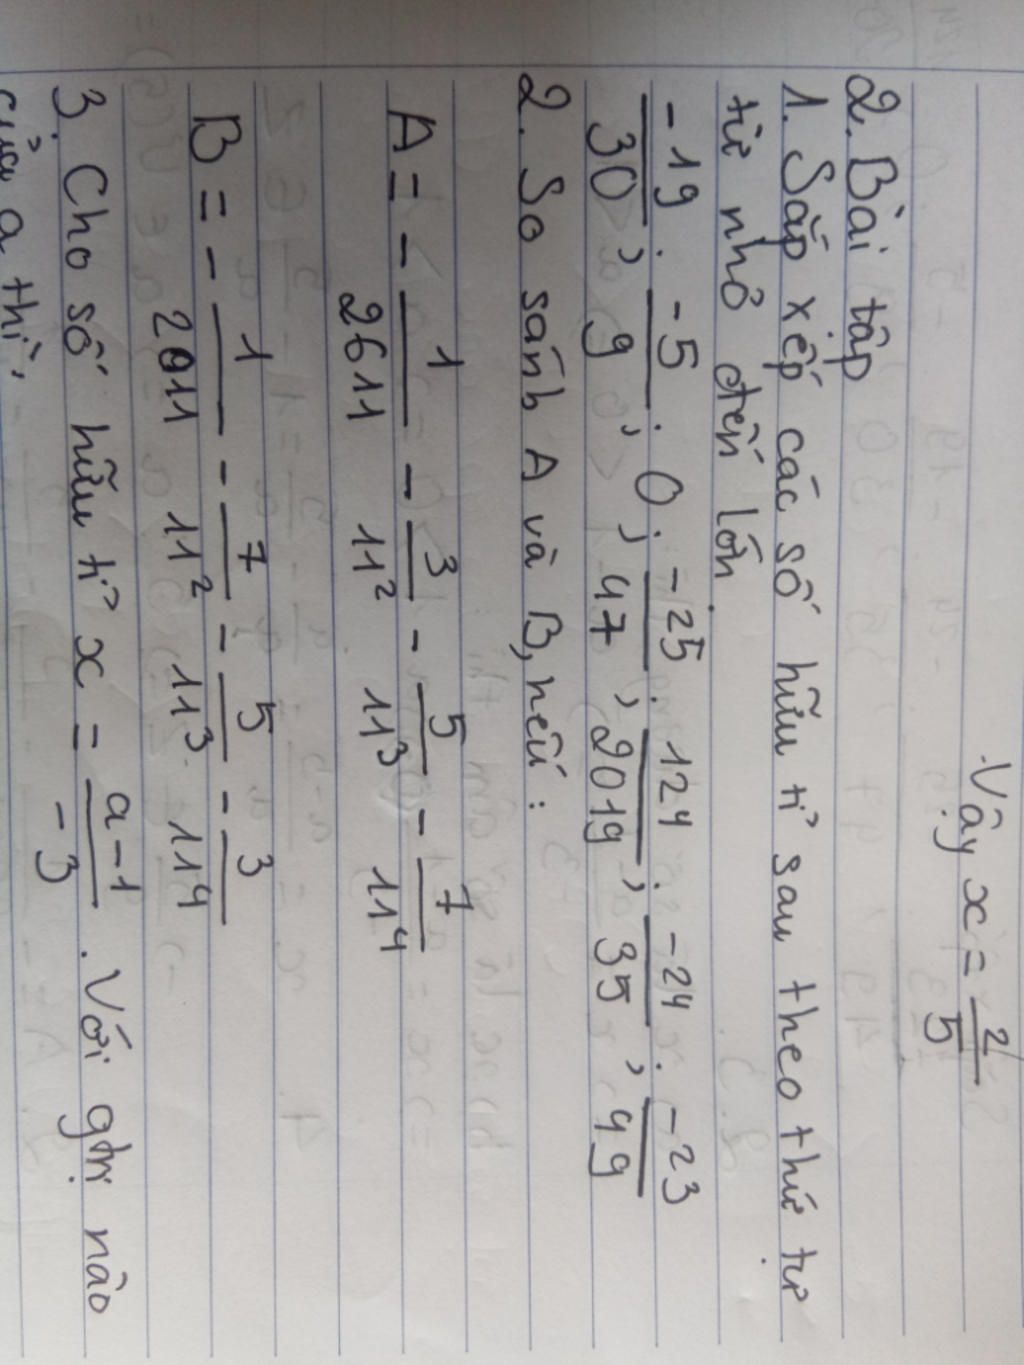 Vậy x = 2/5
2. Bài tập
1. Sắp xếp các số hữu tỉ sau theo thứ tự
từ nhỏ đến lớn.
-19/30; -5/9; 0; -25/47; 124/2019; -24/35; -23/49
2. So sánh A và B, nếu:
A = - 1/2611 - 3/11² - 5/11³ - 7/11⁴
B = - 1/2011 - 7/11² - 5/11³ - 3/11⁴
3. Cho số hữu tỉ x = a-1/-3. Với gtrị nào
của a thì,